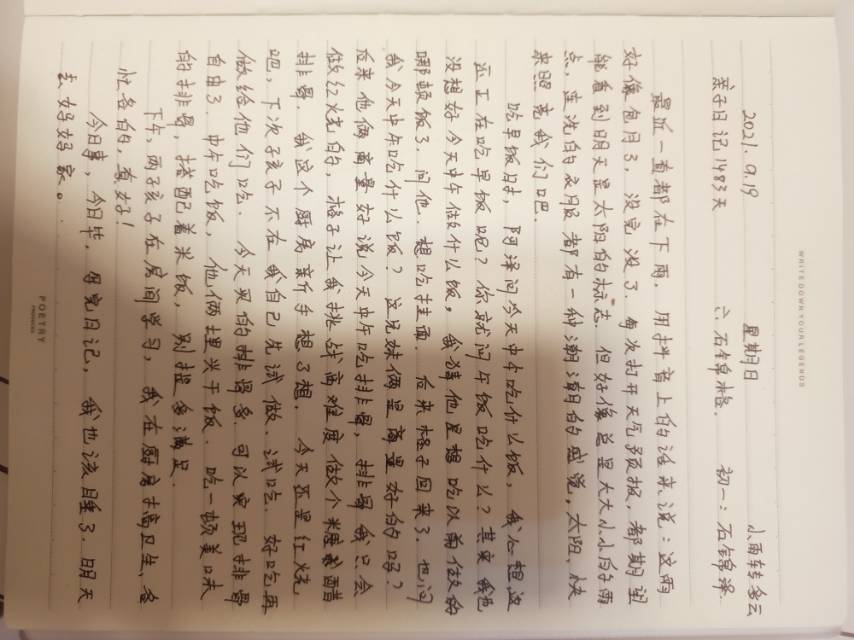 WRITE DOWN YOUR LEGENDS
2021.9.19 星期日 小雨转多云
亲子日记1483天 六:石锦格. 初一:石锦泽.
最近一直都在下雨. 用抖音上的话来说:这雨
好像包月了, 没完没了. 每次打开天气预报, 都期望
能看到明天是太阳的标志. 但好像总是大大小小的雨
点, 连洗的衣服都有一种潮潮的感觉, 太阳, 快
来照亮我们吧.
吃早饭时, 阿泽问今天中午吃什么饭, 我心想这
还正在吃早饭呢? 你就问午饭吃什么? 其实我也
没想好今天中午做什么饭, 我猜他是想吃以前做的
哪顿饭了. 问他. 想吃挂面. 后来格子回来了. 也问
我今天中午吃什么饭? 这兄妹俩是商量好的吗?
后来他俩商量好说今天中午吃排骨, 排骨我只会
做红烧的, 格子让我挑战高难度做个糖醋
排骨. 我这个厨房新手想了想. 今天还是红烧
吧, 下次孩子不在我自己先试做. 试吃. 好吃再
做给他们吃. 今天买的排骨多. 可以实现排骨
自由了. 中午吃饭, 他俩埋头干饭. 吃一顿美味
的排骨, 搭配着米饭, 别提多满足.
下午, 两孩子在房间学习, 我在厨房搞卫生, 各
忙各的, 真好!
今日事, 今日毕. 写完日记, 我也该睡了. 明天
去好好家。
POETRY